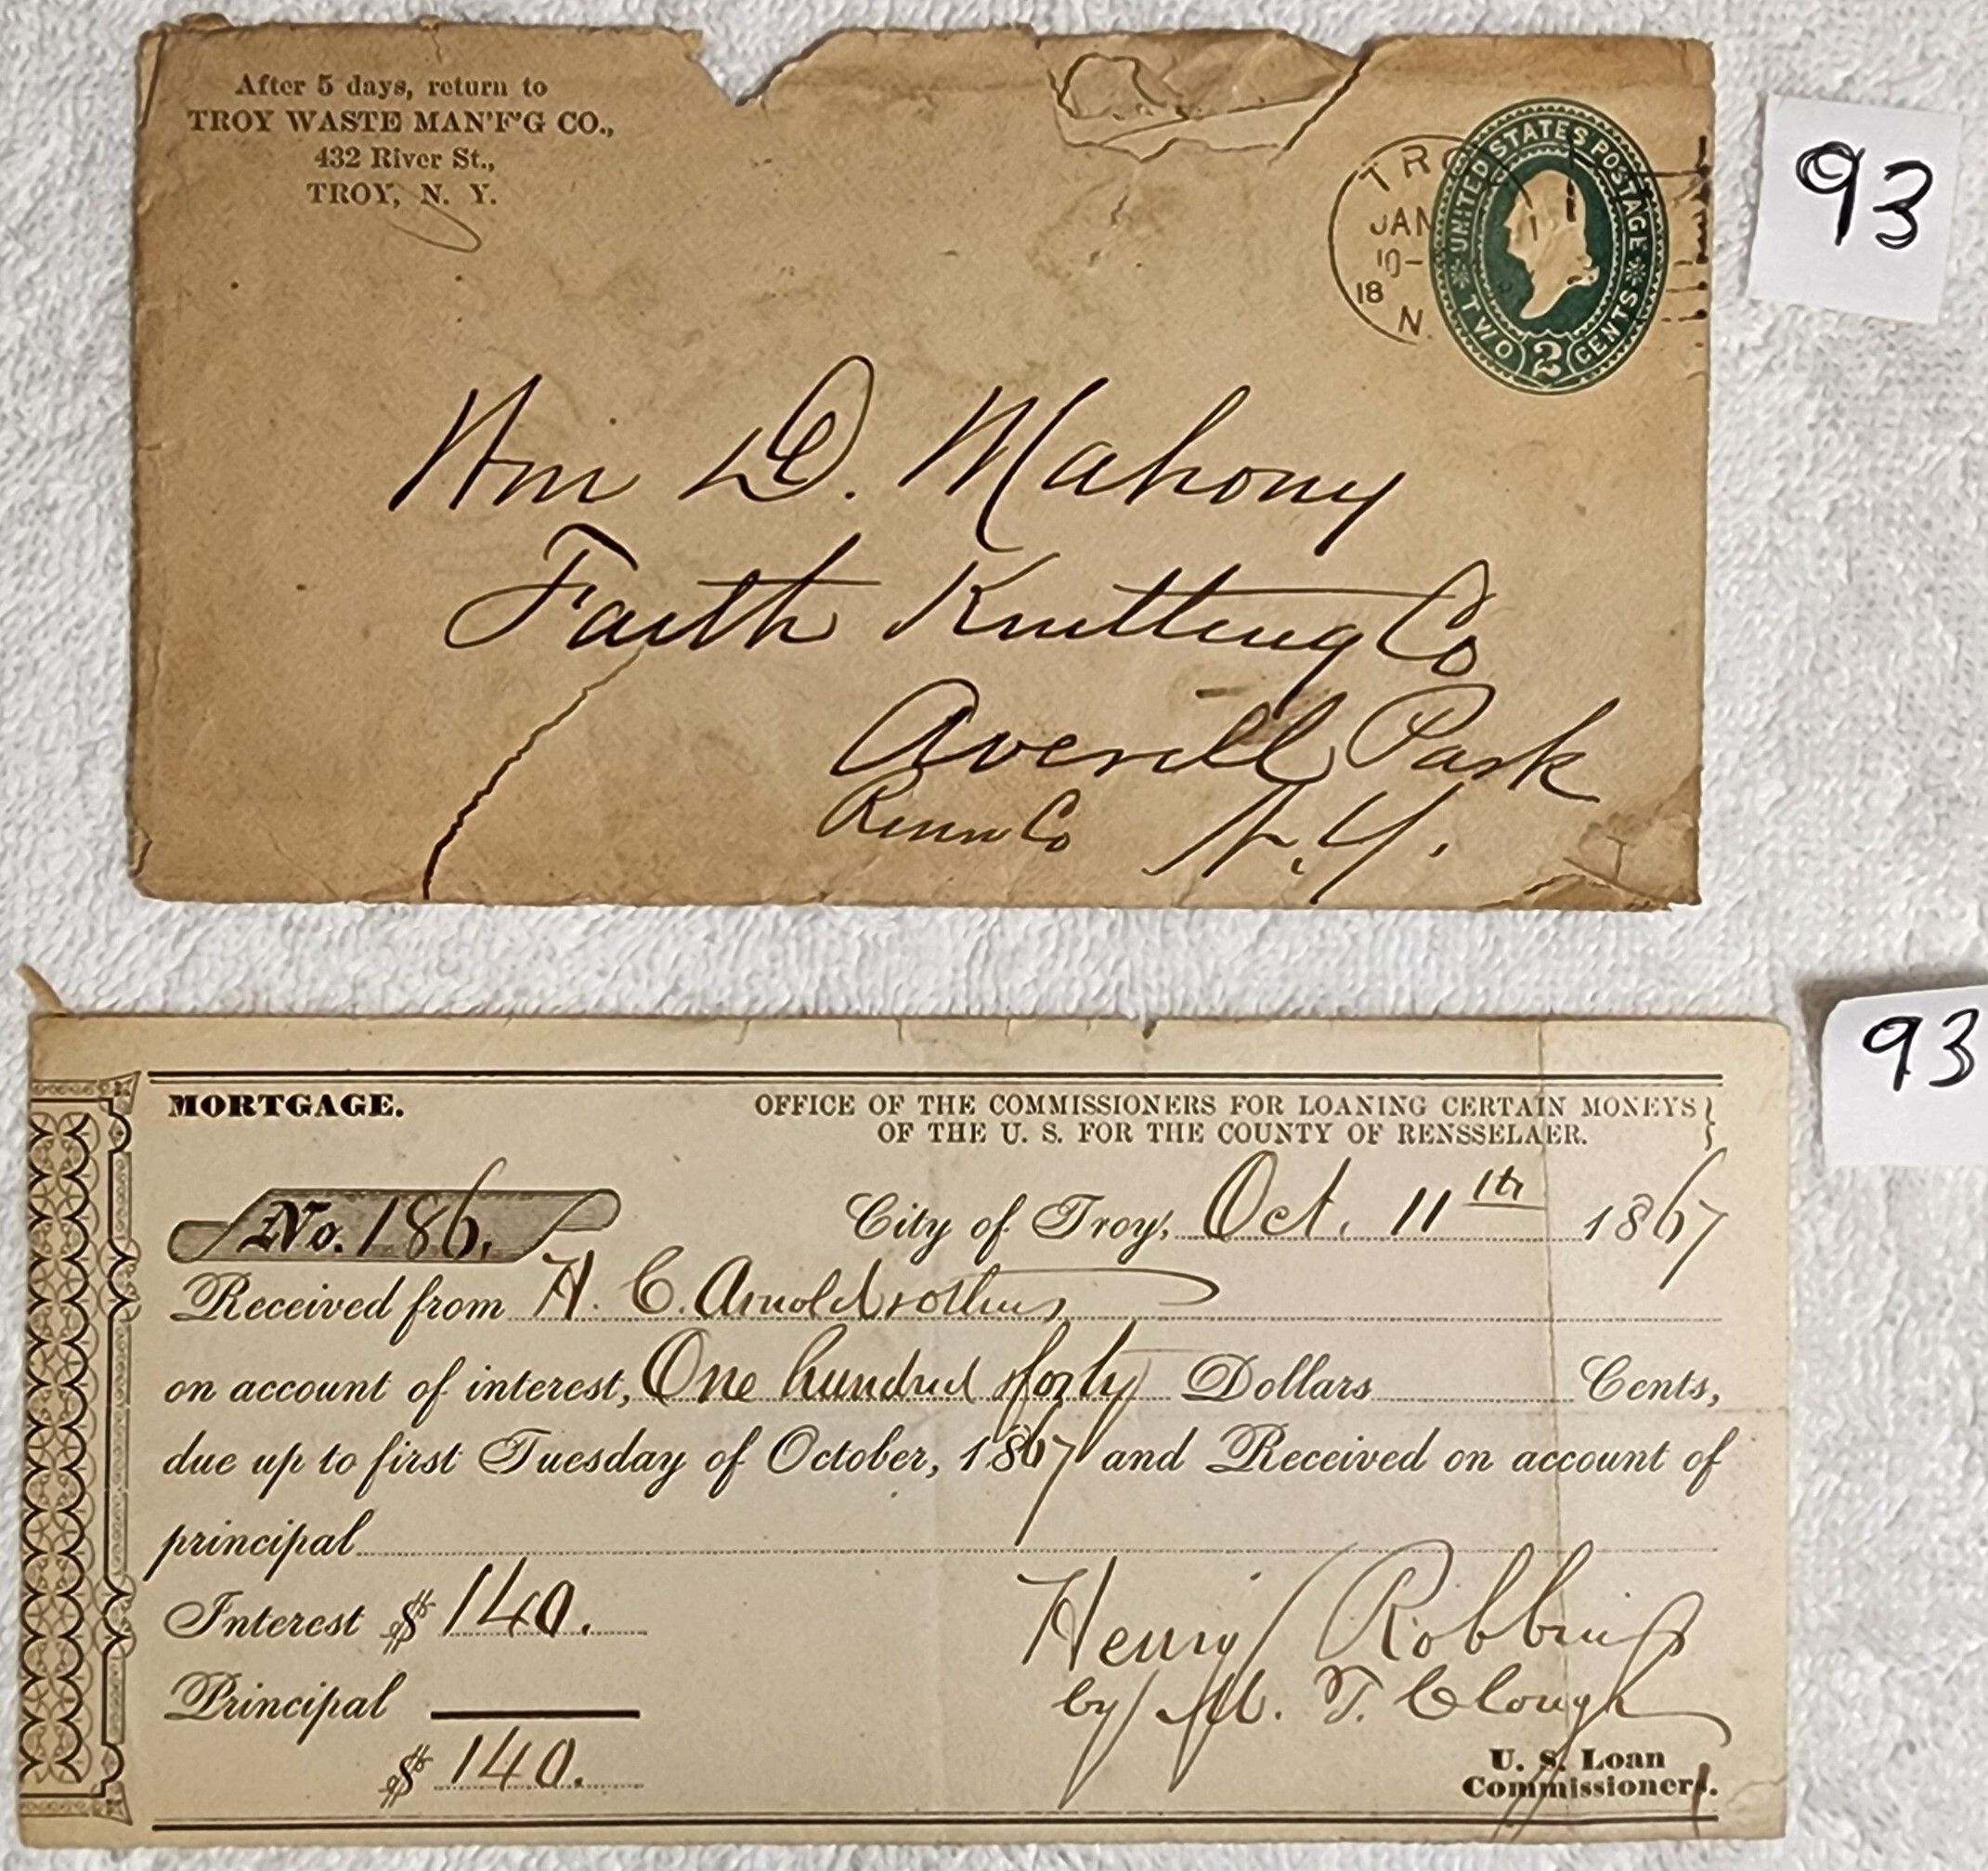 After 5 days, return to
TROY WASTE MAN'F'G CO.,
432 River St.,
TROY, N. Y.
TRO
JAN
10-
18
N.
UNITED STATES POSTAGE
TWO 2 CENTS
93
Wm D. Mahony
Faith Knitting Co
Averill Park
Renn Co N.Y.
93
MORTGAGE.
OFFICE OF THE COMMISSIONERS FOR LOANING CERTAIN MONEYS
OF THE U. S. FOR THE COUNTY OF RENSSELAER.
No. 186. City of Troy, Oct. 11th 1867
Received from H. C. Arnold
on account of interest, One hundred forty Dollars Cents,
due up to first Tuesday of October, 1867 and Received on account of
principal
Interest $ 140.
Principal
$ 140.
Henry Robbins
by M. T. Clough
U. S. Loan
Commissioners.